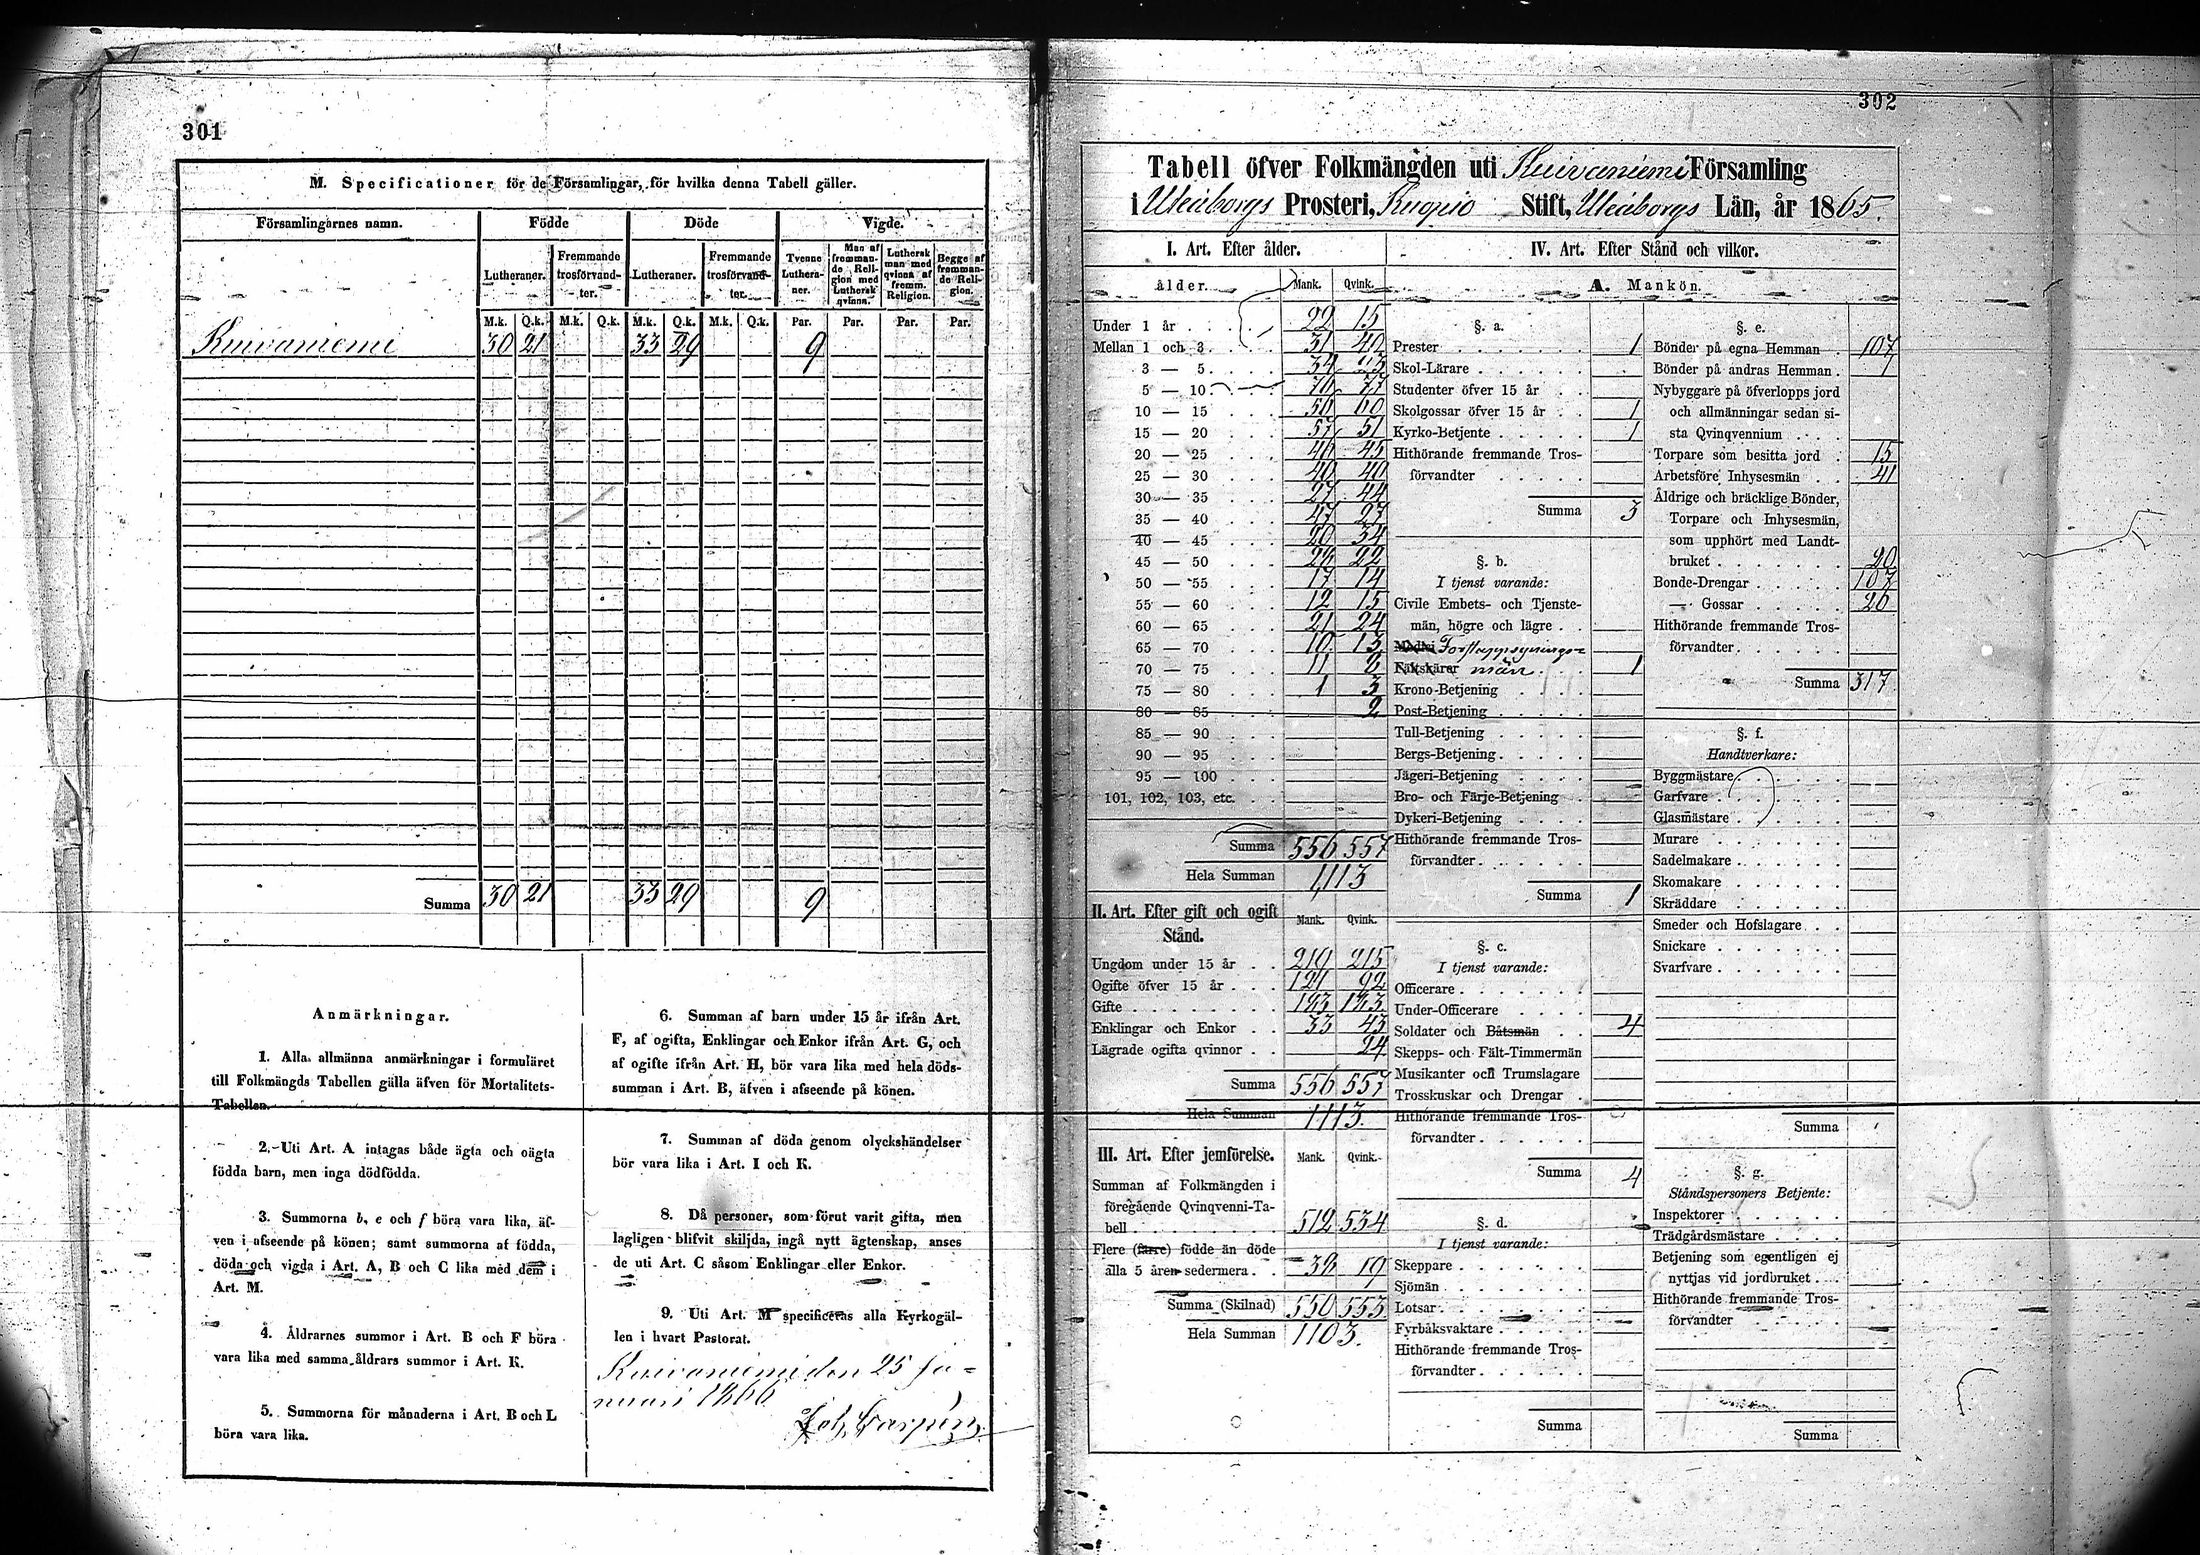 301
M. Specificationer för de Församlingar, för hvilka denna Tabell gäller.
Församlingarnes namn. Födde Döde Vigde.
Lutheraner. Fremmande trosförvandter. Lutheraner. Fremmande trosförvandter. Tvenne Lutheraner. Man af fremmande Religion med Luthersk qvinna. Luthersk man med qvinna af fremm. Religion. Begge af fremmande Religion.
M.k. Q.k. M.k. Q.k. M.k. Q.k. M.k. Q.k. Par. Par. Par. Par.
Kuivaniemi 30 21 33 29 9
Summa 30 21 33 29 9
Anmärkningar.
1. Alla allmänna anmärkningar i formuläret
till Folkmängds Tabellen gälla äfven för Mortalitets-
Tabellen.
2. Uti Art. A intagas både ägta och oägta
födda barn, men inga dödfödda.
3. Summorna b, e och f böra vara lika, äf-
ven i afseende på könen; samt summorna af födda,
döda och vigda i Art. A, B och C lika med dem i
Art. M.
4. Åldrarnes summor i Art. B och F böra
vara lika med samma åldrars summor i Art. K.
5. Summorna för månaderna i Art. B och L
böra vara lika.
6. Summan af barn under 15 år ifrån Art.
F, af ogifta, Enklingar och Enkor ifrån Art. G, och
af ogifte ifrån Art. H, bör vara lika med hela döds-
summan i Art. B, äfven i afseende på könen.
7. Summan af döda genom olyckshändelser
bör vara lika i Art. I och K.
8. Då personer, som förut varit gifta, men
lagligen blifvit skiljda, ingå nytt ägtenskap, anses
de uti Art. C såsom Enklingar eller Enkor.
9. Uti Art. M specificeras alla Kyrkogäl-
len i hvart Pastorat.
Kuivaniemi den 25 Ja-
nuari 1866
302
Tabell öfver Folkmängden uti Kuivaniemi Församling
i Uleåborgs Prosteri, Kuopio Stift, Uleåborgs Län, år 1865.
I. Art. Efter ålder.
ålder. Mank. Qvink.
Under 1 år 22 15
Mellan 1 och 3 31 40
3 — 5 34 23
5 — 10 77
10 — 15
15 — 20 57 51
20 — 25 46 45
25 — 30 40 40
30 — 35 27 44
35 — 40 47 27
40 — 45 20 34
45 — 50 22
50 — 55 17 14
55 — 60 12 15
60 — 65 21 24
65 — 70 10 13
70 — 75 11 8
75 — 80 1 3
80 — 85 2
85 — 90
90 — 95
95 — 100
101, 102, 103, etc.
Summa 556 557
Hela Summan 1,113
II. Art. Efter gift och ogift
Stånd. Mank. Qvink.
Ungdom under 15 år 219 215
Ogifte öfver 15 år 121 92
Gifte 183 183
Enklingar och Enkor 33 43
Lägrade ogifta qvinnor 24
Summa 556 557
Hela Summan 1113.
III. Art. Efter jemförelse. Mank. Qvink.
Summan af Folkmängden i
föregående Qvinqvenni-Ta-
bell 512 534
Flere (färre) födde än döde
alla 5 åren sedermera 38 19
Summa (Skilnad) 550 553
Hela Summan 1103.
IV. Art. Efter Stånd och vilkor.
A. Mankön.
§. a.
Prester 1
Skol-Lärare
Studenter öfver 15 år
Skolgossar öfver 15 år 1
Kyrko-Betjente 1
Hithörande fremmande Tros-
förvandter
Summa 3
§. b.
I tjenst varande:
Civile Embets- och Tjenste-
män, högre och lägre
Medici
Fältskärer män 1
Krono-Betjening
Post-Betjening
Tull-Betjening
Bergs-Betjening
Jägeri-Betjening
Bro- och Färje-Betjening
Dykeri-Betjening
Hithörande fremmande Tros-
förvandter
Summa 1
§. c.
I tjenst varande:
Officerare
Under-Officerare
Soldater och Båtsmän 4
Skepps- och Fält-Timmermän
Musikanter och Trumslagare
Trosskuskar och Drengar
Hithörande fremmande Tros-
förvandter
Summa 4
§. d.
I tjenst varande:
Skeppare
Sjömän
Lotsar
Fyrbåksvaktare
Hithörande fremmande Tros-
förvandter
Summa
§. e.
Bönder på egna Hemman 107
Bönder på andras Hemman 1
Nybyggare på öfverlopps jord
och allmänningar sedan si-
sta Qvinqvennium
Torpare som besitta jord 15
Arbetsföre Inhysesmän 41
Åldrige och bräcklige Bönder,
Torpare och Inhysesmän,
som upphört med Landt-
bruket 20
Bonde-Drengar 107
— Gossar 26
Hithörande fremmande Tros-
förvandter
Summa 317
§. f.
Handtverkare:
Byggmästare
Garfvare
Glasmästare
Murare
Sadelmakare
Skomakare
Skräddare
Smeder och Hofslagare
Snickare
Svarfvare
Summa
§. g.
Ståndspersoners Betjente:
Inspektorer
Trädgårdsmästare
Betjening som egentligen ej
nyttjas vid jordbruket
Hithörande fremmande Tros-
förvandter
Summa